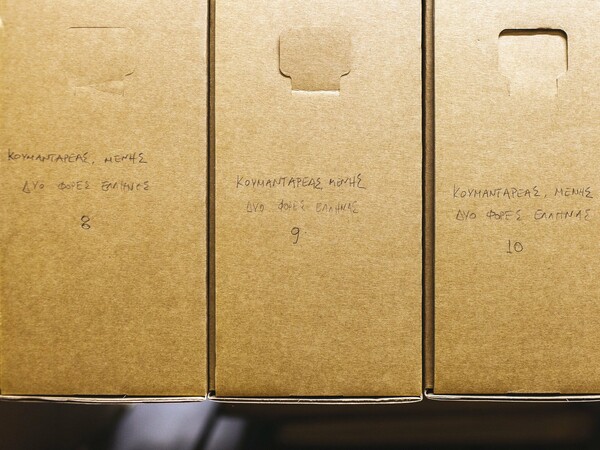 ΚΟΥΜΑΝΤΑΡΕΑΣ, ΜΕΝΗΣ
ΔΥΟ ΦΟΡΕΣ ΕΛΛΗΝΑΣ
8
ΚΟΥΜΑΝΤΑΡΕΑΣ ΜΕΝΗΣ
ΔΥΟ ΦΟΡΕΣ ΕΛΛΗΝΑΣ
9
ΚΟΥΜΑΝΤΑΡΕΑΣ, ΜΕΝΗΣ
ΔΥΟ ΦΟΡΕΣ ΕΛΛΗΝΑΣ
10